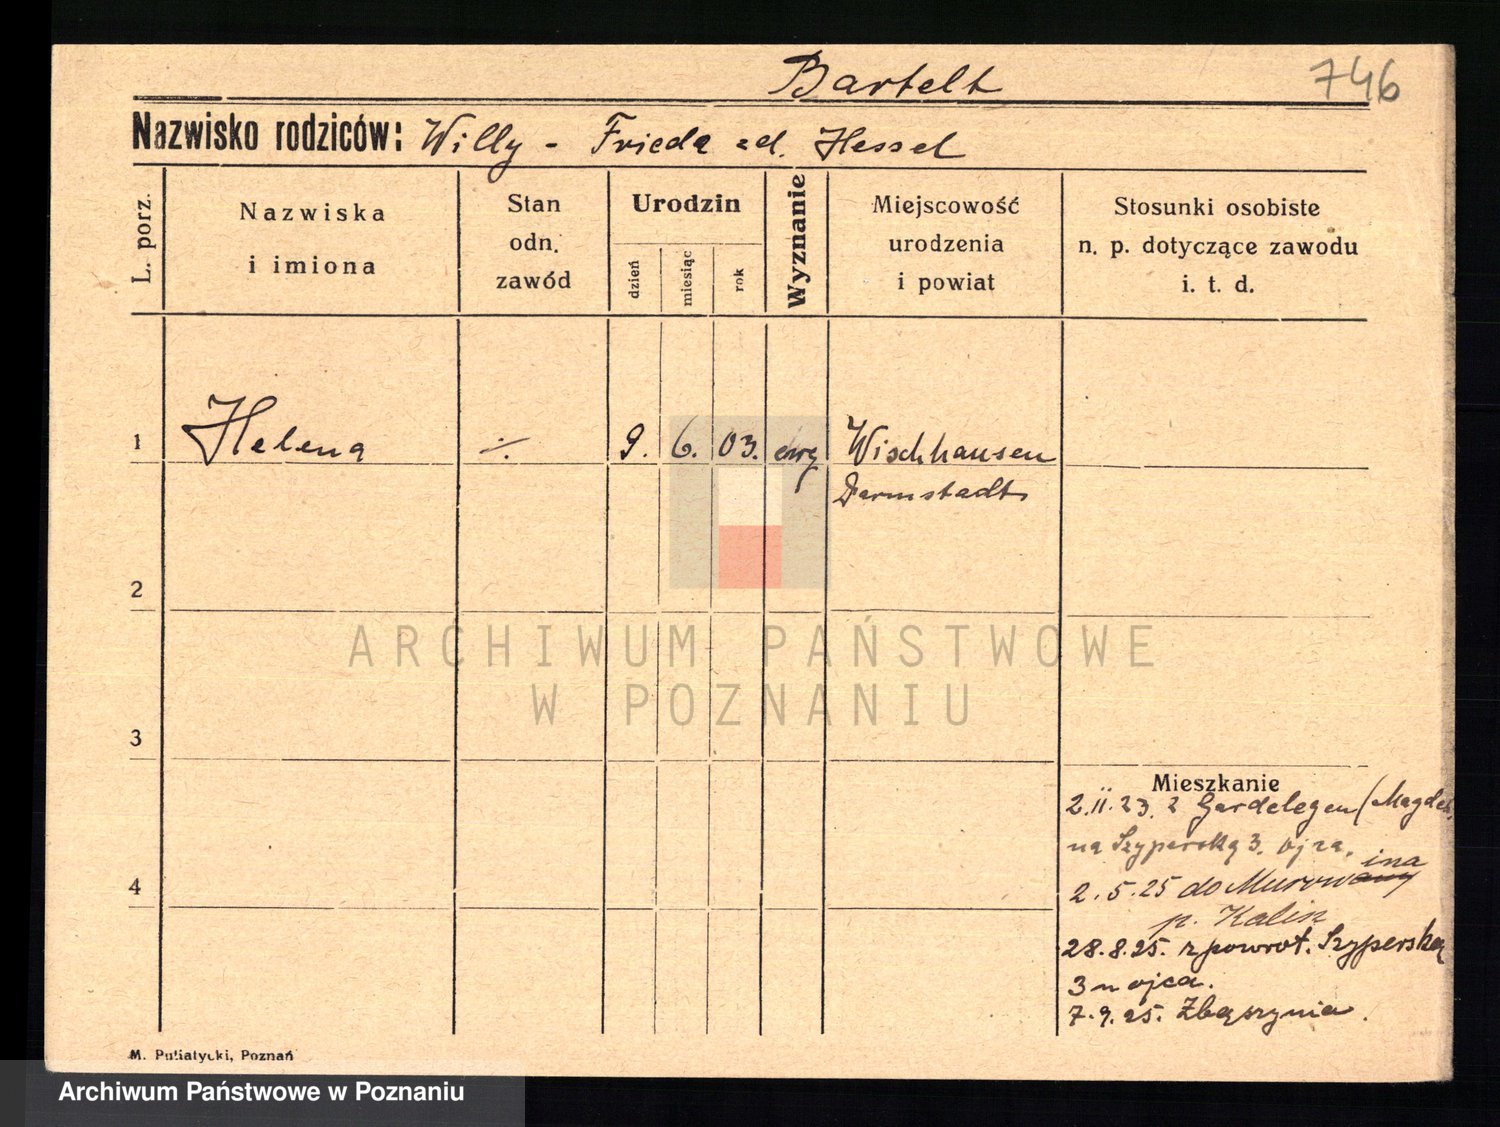 Bartelt
746
Nazwisko rodziców: Willy - Frieda zd. Hessel
L. porz.
Nazwiska
i imiona
Stan
odn.
zawód
Urodzin
dzień
miesiąc
rok
Wyznanie
Miejscowość
urodzenia
i powiat
Stosunki osobiste
n. p. dotyczące zawodu
i. t. d.
1 Helena ·/. 9. 6. 03. ewg Wischhausen
Darmstadt
2
ARCHIWUM PAŃSTWOWE
W POZNANIU
3
Mieszkanie
2.II.23. z Gardelegen (Magdeb.
na Szyperską 3. ojca.
4
2.5.25 do Murowina
p. Kalin
28.8.25. z powrot. Szyperska
3 u ojca.
7.9.25. Zbąszynia.
M. Putiatycki, Poznań
Archiwum Państwowe w Poznaniu